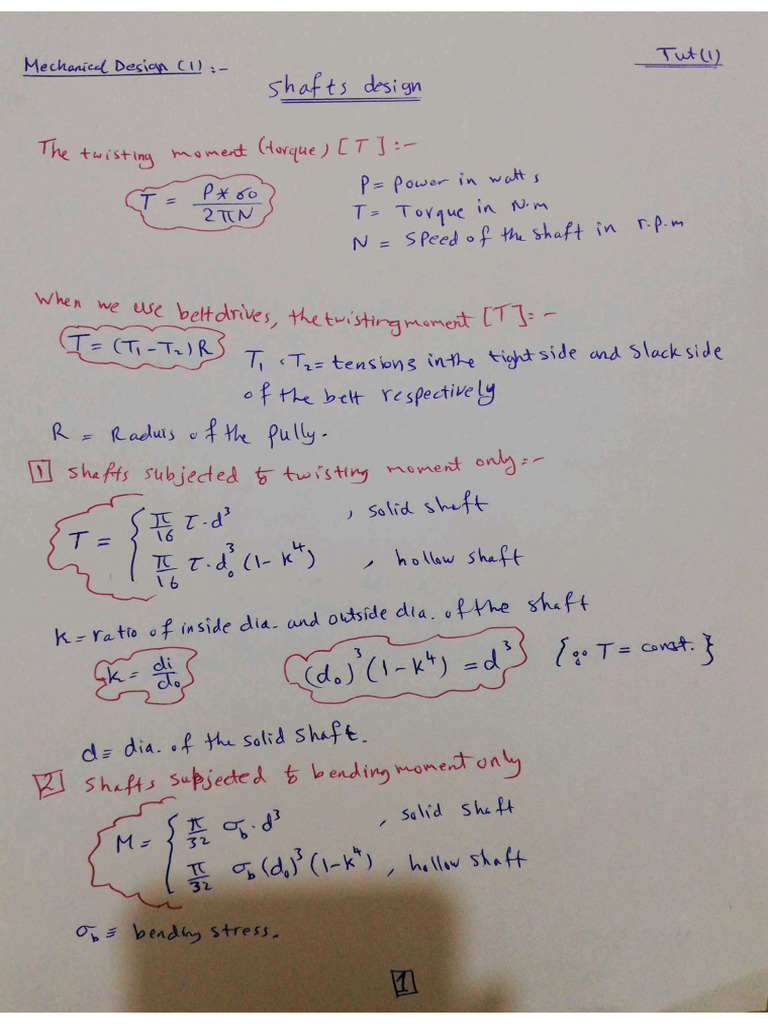 Mechanical Design (1) :-
Tut(1)
Shafts design
The twisting moment (torque) [T] :-
T = P*60 / 2πN
P = Power in watts
T = Torque in N.m
N = Speed of the shaft in r.p.m
When we use belt drives, the twisting moment [T] :-
T = (T₁-T₂) R
T₁ , T₂ = tensions in the tight side and slack side
of the belt respectively
R = Raduis of the pully.
1 Shafts subjected to twisting moment only :-
T = { π/16 τ·d³ , solid shaft
π/16 τ·d₀³ (1-k⁴) , hollow shaft
k = ratio of inside dia. and outside dia. of the shaft
k = di/do
(do)³ (1-k⁴) = d³
{ ∴ T = const. }
d ≡ dia. of the solid shaft.
2 Shafts subjected to bending moment only
M = { π/32 σb·d³ , solid shaft
π/32 σb (do)³ (1-k⁴) , hollow shaft
σb ≡ bending stress.
1